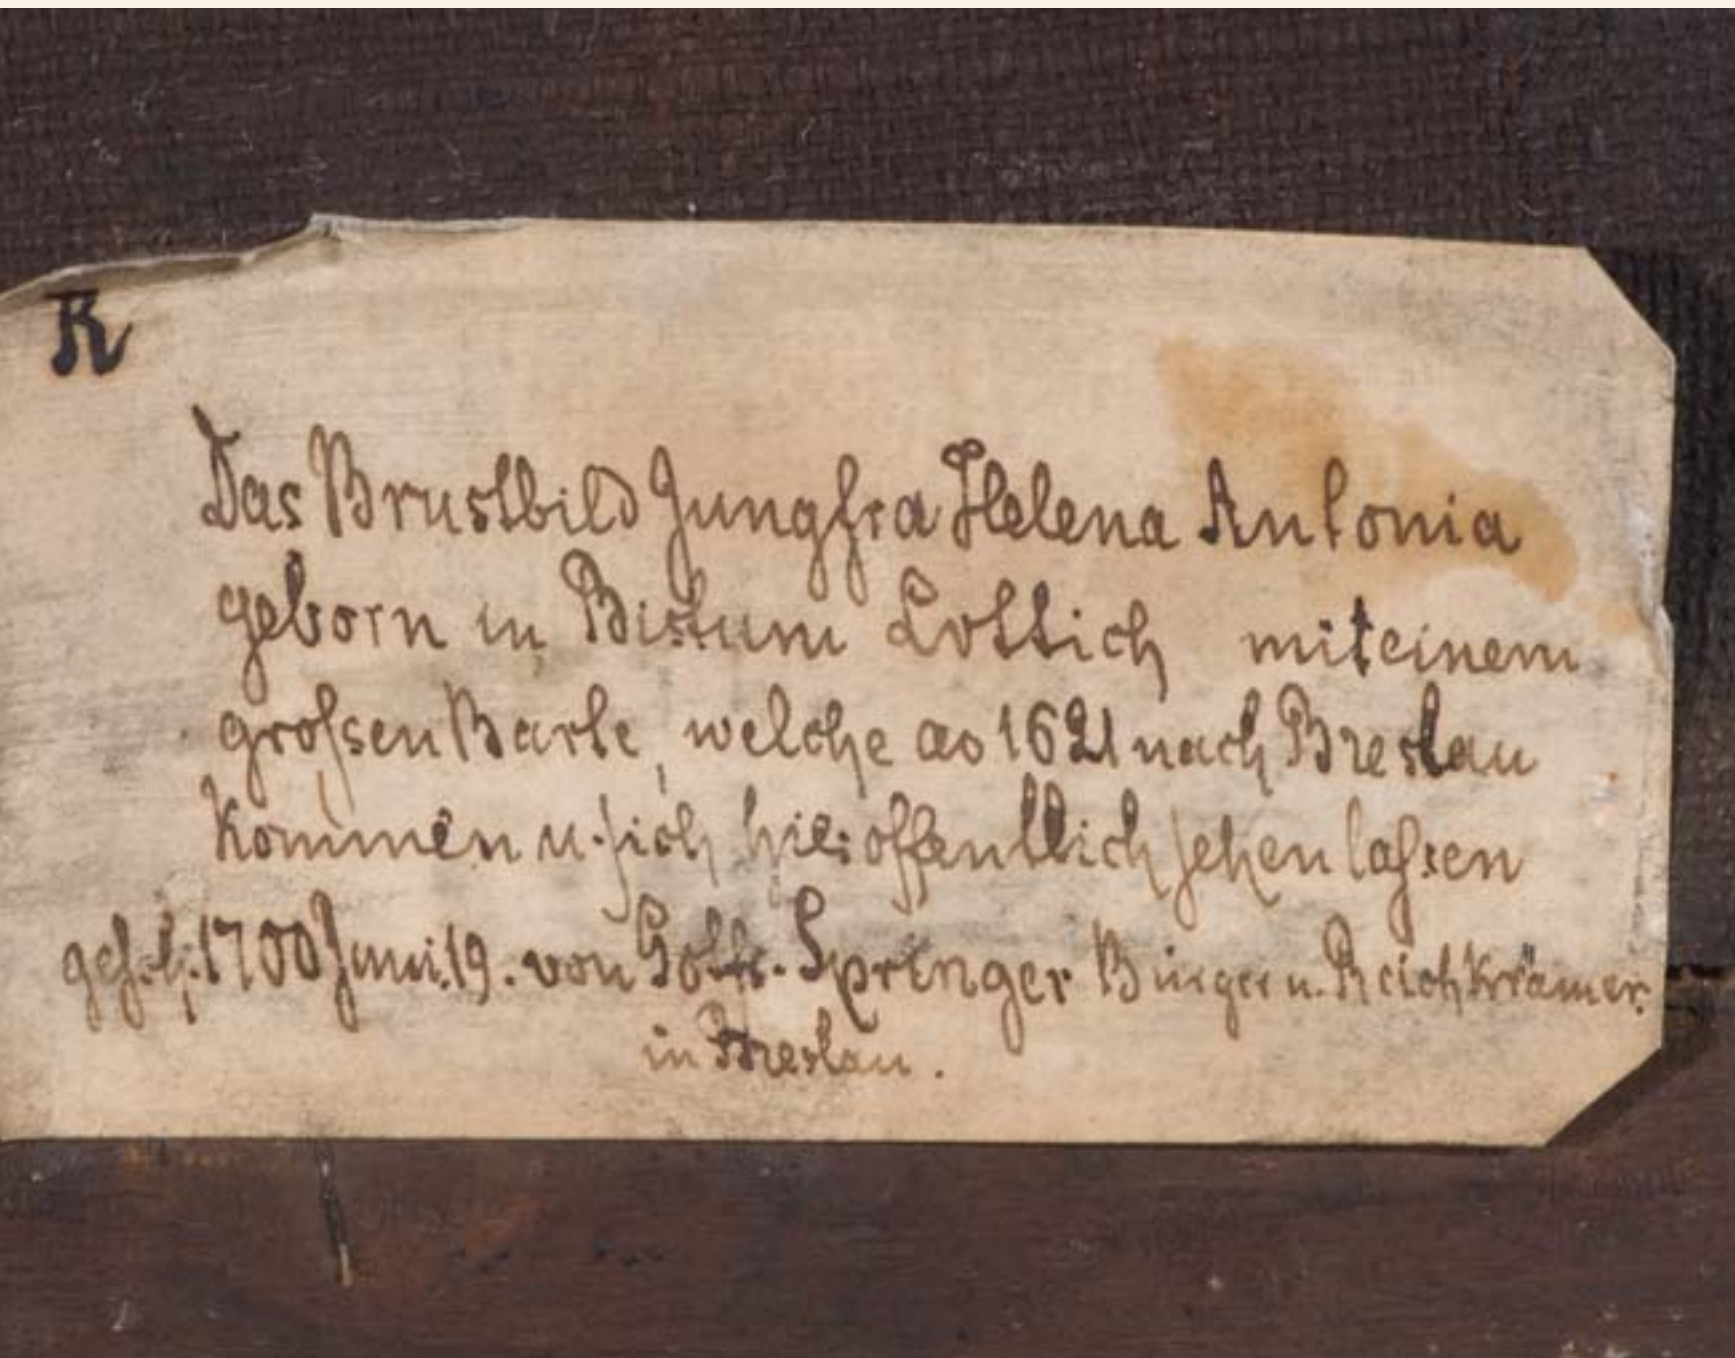 R
Das Brustbild Jungfra Helena Antonia
geborn in Bistum Lottich mit einem
großsen Barte, welche ao 1621 nach Breslau
kommen u. sich hier offentlich sehen laßsen
1700 Juni. 19. von Gottfr. Springer Bürger u. Reichkrämer
in Breslau.